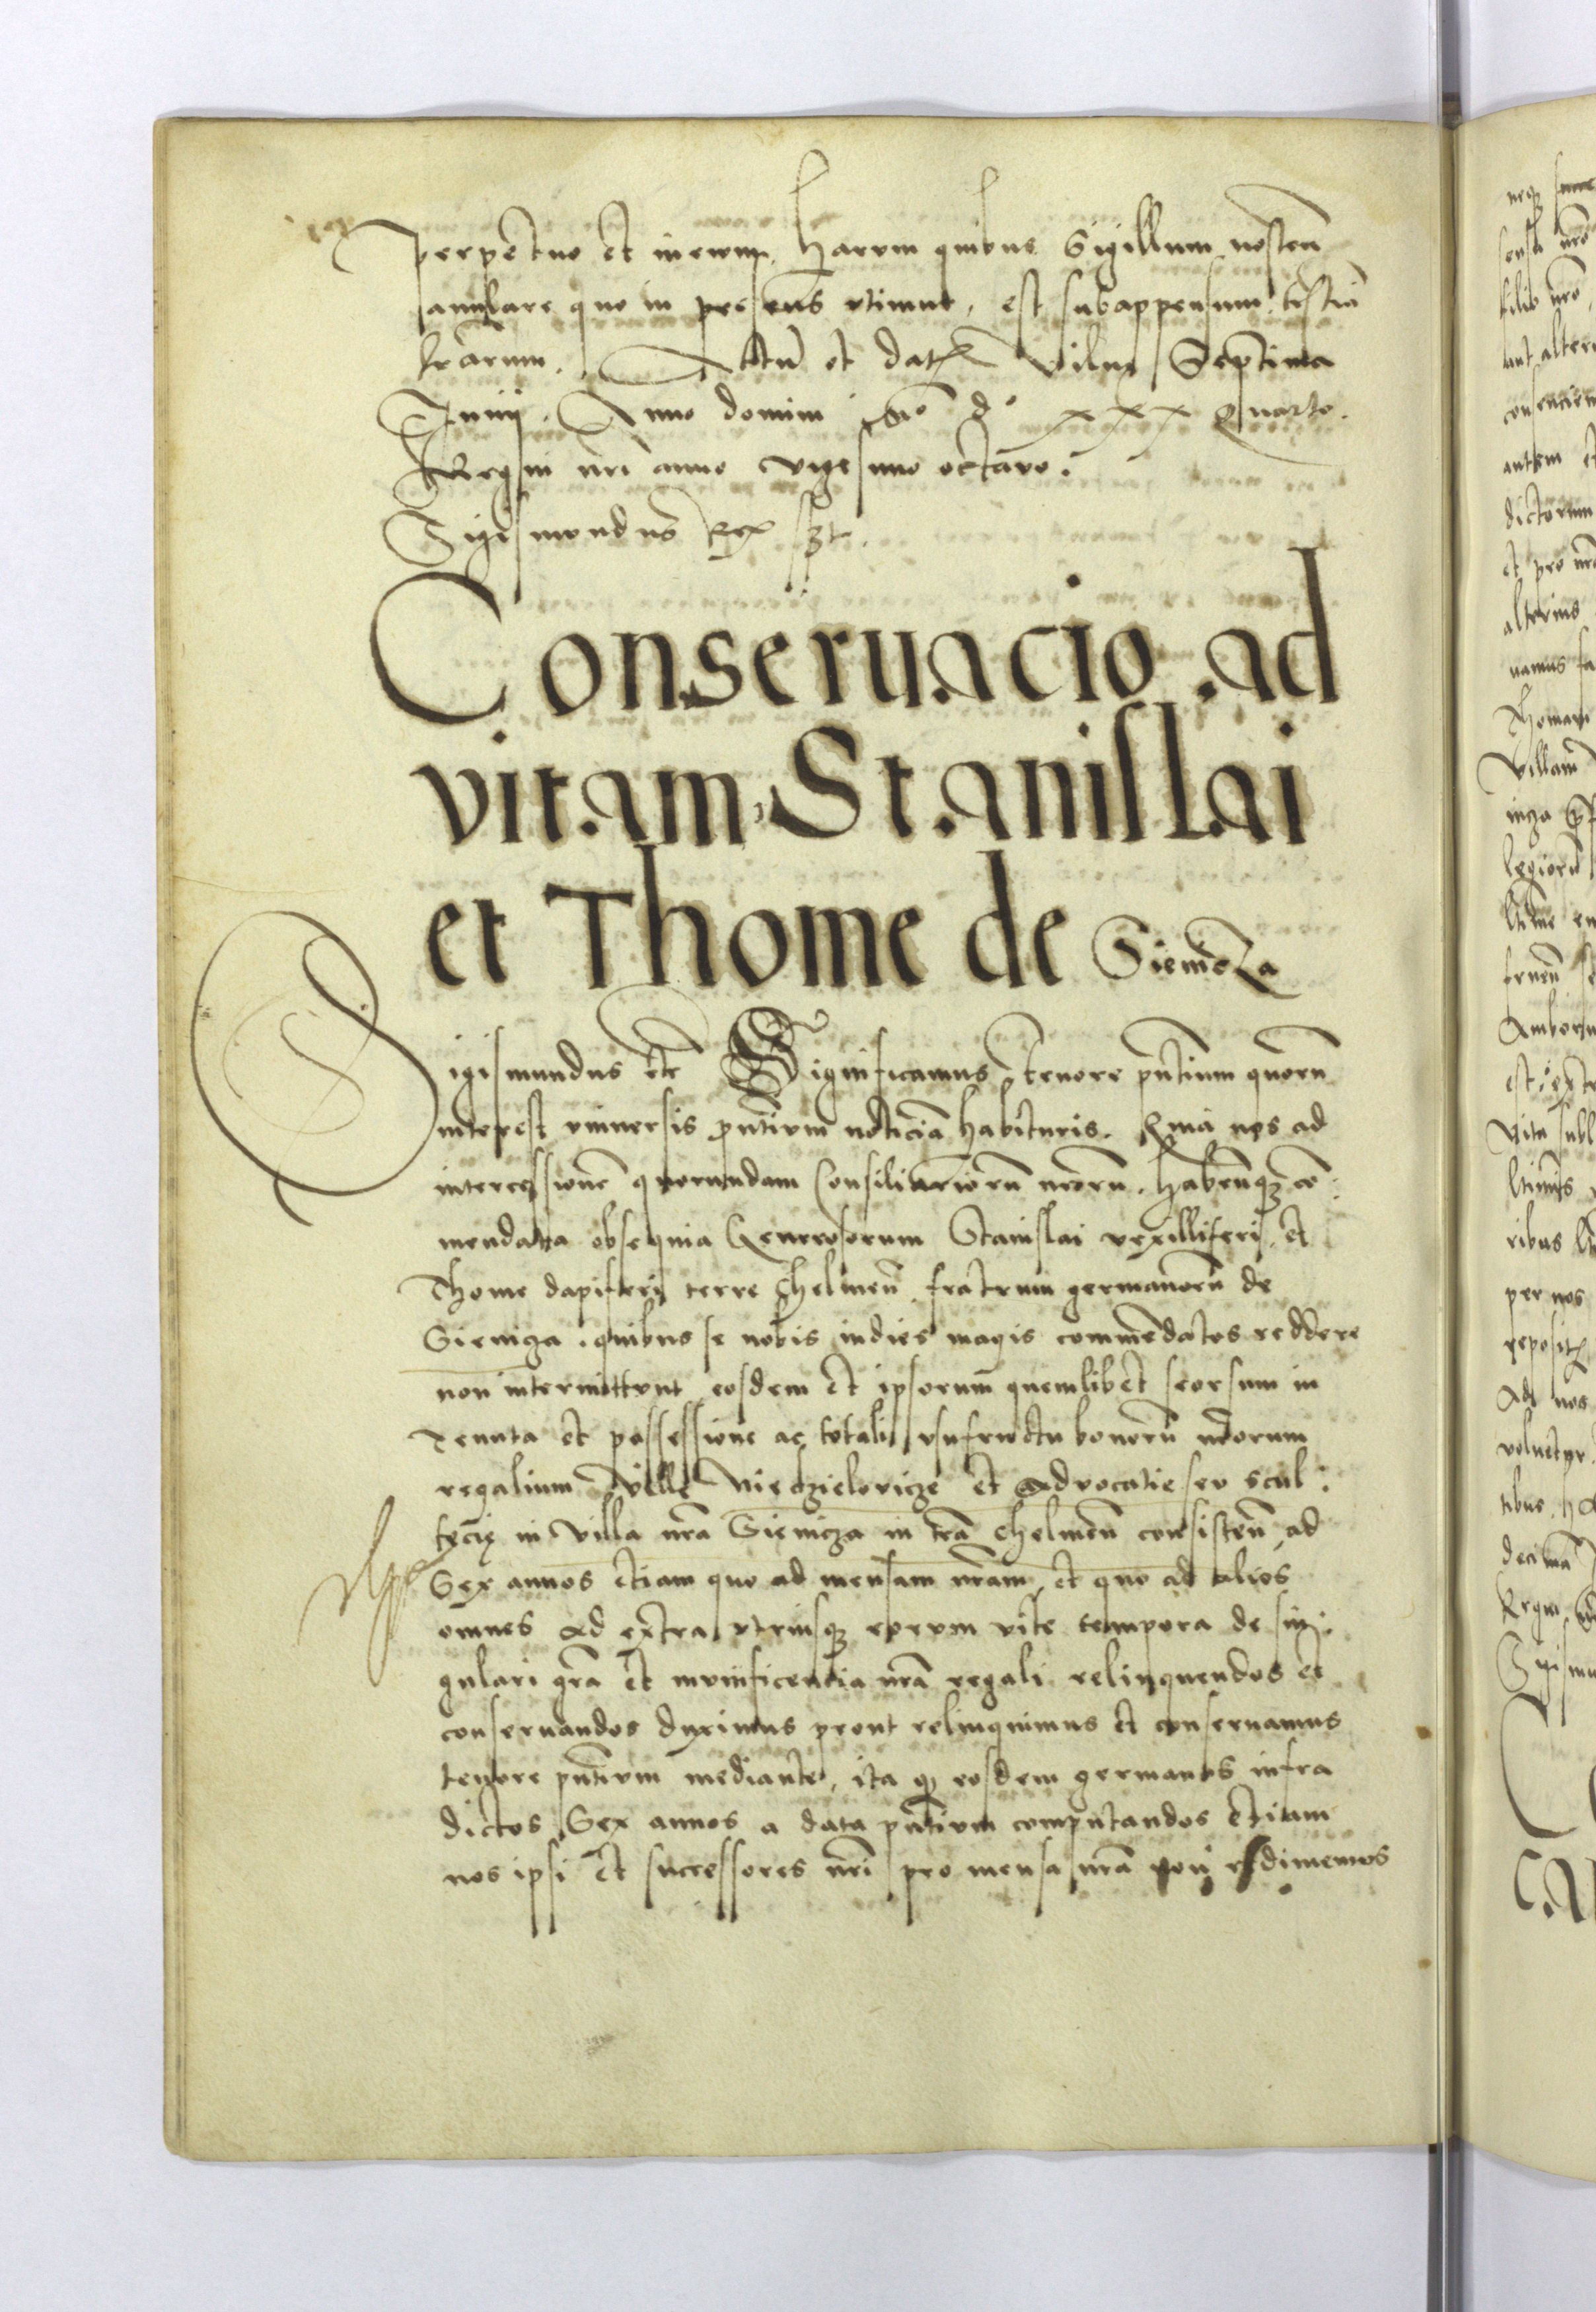 perpetuo et in ewm. Harum quibus Sigillum nostrū
anulare quo in presens vtimur, est subappensum testiō
lrārum. Actū et dat Vilne Septima
Junij. Anno domini mō dº xxx Quarto.
Regni nrī anno vigesimo octāuo.
Sigismondus Rex sszt.
Conseruacio ad
vitam Stanislai
et Thome de Siennicza
Sigismundus etc Significamus tenore pntium quorū
interest vniuersis pntium noticiā habituris. Quia nos ad
intercessionē quorundam Consiliariorū nrorū. Habentesqз cō:
mendata obsequia Generosorum Stanislai vexilliferi, et
Thome dapiferi terre Chelmen̄. fratrum germanorū de
Sienicza. quibus se nobis indies magis commēdatos reddere
non intermittunt, eosdem et ipsorum quemlibet seorsum in
Tenuta et possessione ac totali vsufructu bonorū nrorum
regalium Ville Niedzielovicze et Aduocatie seu scul:
tecię in villa nrā Sienicza in trā Chelmen̄ consisten̄, ad
Sex annos etiam quo ad mensam nrām, et quo ad alios
omnes ad extra vtriusqз eorum vite tempora de sin:
gulari grā et munificentia nrā regali relinquendos et
conseruandos duximus prout relinquimus et conseruamus
tenore pntium mediante, ita qз eosdem germanos infra
dictos Sex annos a data pntium computandos etiam
nos ipsi et successores nrī pro mensa nrā non redimemus